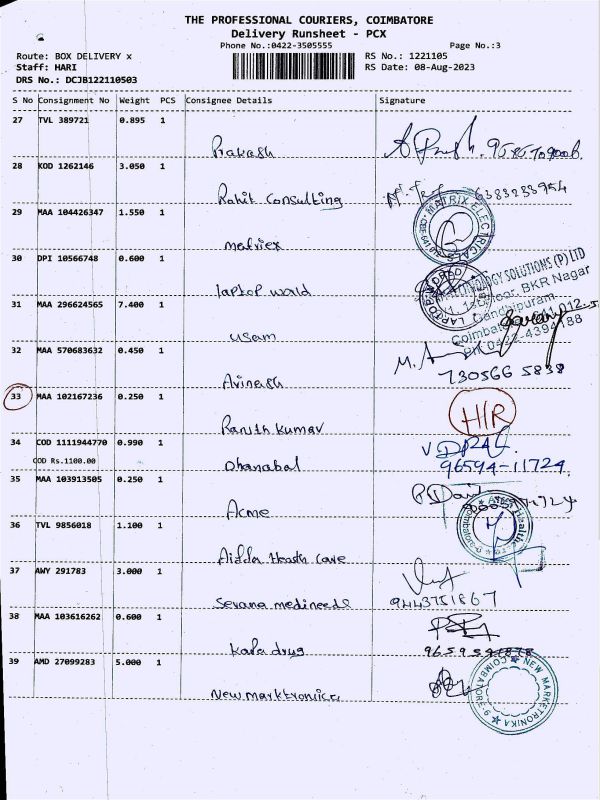 THE PROFESSIONAL COURIERS, COIMBATORE
Delivery Runsheet - PCX
Phone No.:0422-3505555 Page No.:3
Route: BOX DELIVERY x RS No.: 1221105
Staff: HARI RS Date: 08-Aug-2023
DRS No.: DCJB122110503
S No Consignment No Weight PCS Consignee Details Signature
27 TVL 389721 0.895 1
Prakash
28 KOD 1262146 3.050 1
Rohit Consulting 6383233954
29 MAA 104426347 1.550 1
MATRIX ELECTRICALS
matriex
30 DPI 10566748 0.600 1
SOLUTIONS (P) LTD
laptop world BKR Nagar
Gandhipuram
31 MAA 296624565 7.400 1
usam
32 MAA 570683632 0.450 1
Avinash 730566 5838
33 MAA 102167236 0.250 1
H/R
Ranjth kumar
34 COD 1111944770 0.990 1
COD Rs.1100.00
Dhanabal 96594-11724
35 MAA 103913505 0.250 1
Acme
36 TVL 9856018 1.100 1
Health Care
37 AWY 291783 3.000 1
Sevana medineeds 9443751867
38 MAA 103616262 0.600 1
drug
39 AMD 27099283 5.000 1
NEW MARKETRONIKA COIMBATORE-9
New marktronics